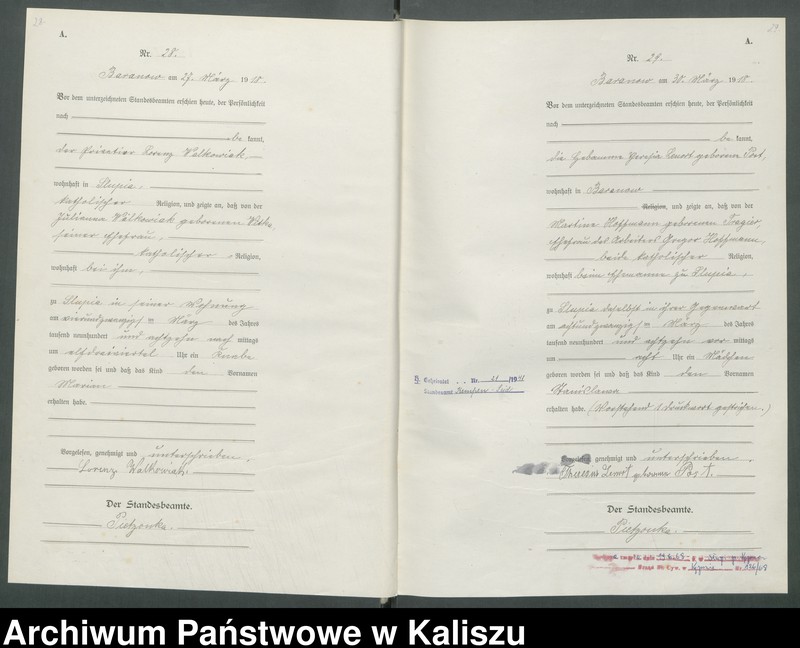 28.
A.
Nr. 28.
Baranow am 27. März 1918.
Vor dem unterzeichneten Standesbeamten erschien heute, der Persönlichkeit
nach
be kannt,
der Privatier Lorenz Walkowiak,
wohnhaft in Slupia,
katholischer Religion, und zeigte an, daß von der
Julianna Walkowiak geborenen
seiner Ehefrau,
katholischer Religion,
wohnhaft bei ihm,
zu Slupia in seiner Wohnung
am vierundzwanzigsten März des Jahres
tausend neunhundert und achtzehn nach mittags
um elfdreiviertel Uhr ein Knabe
geboren worden sei und daß das Kind den Vornamen
Marian
erhalten habe.
Vorgelesen, genehmigt und unterschrieben.
Lorenz Walkowiak.
Der Standesbeamte.
29.
A.
Nr. 29.
Baranow am 30. März 1918.
Vor dem unterzeichneten Standesbeamten erschien heute, der Persönlichkeit
nach
be kannt,
die Hebamme geborene Post,
wohnhaft in Baranow
Religion, und zeigte an, daß von der
Martina Hoffmann geborenen
Ehefrau des Arbeiters Hoffmann,
beide katholischer Religion,
wohnhaft beim Ehemanne zu Slupia,
zu Slupia daselbst in ihrer Gegenwart
am achtundzwanzigsten März des Jahres
tausend neunhundert und achtzehn vor mittags
um acht Uhr ein Mädchen
geboren worden sei und daß das Kind den Vornamen
Stanislawa
erhalten habe. (Vorstehend 1 Druckwort gestrichen.)
Vorgelesen, genehmigt und unterschrieben.
geborene Post.
Der Standesbeamte.
Archiwum Państwowe w Kaliszu